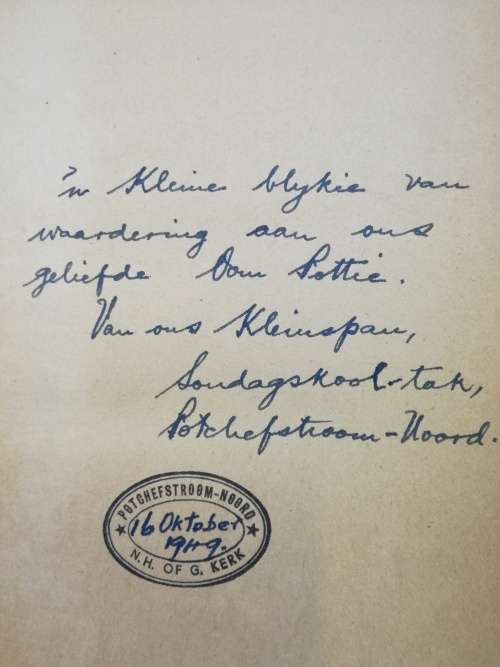 'n Kleine blykie van
waardering aan ons
geliefde Oom Pottie.
Van ons Kleinspan,
Sondagskool-tak,
Potchefstroom-Noord.
POTCHEFSTROOM-NOORD
16 Oktober
1949.
N.H. OF G. KERK